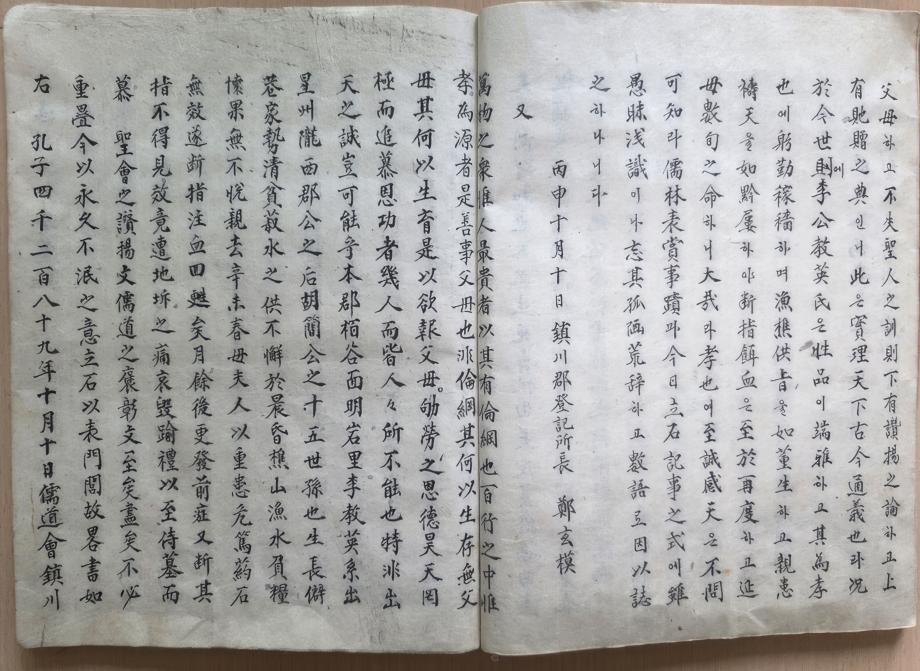 父母하고不失聖人之訓則下有讚揚之論하고上
有貤贈之典인니此은實理天下古今通義也라况
於今世則에李公教英氏은性品이端雅하고其為孝
也에躬勤稼穡하며漁樵供旨을如董生하고親患
禱天을如黔屢하야斷指餌血은至於再度하고延
母數旬之命하니大哉라孝也여至誠感天은不問
可知라儒林表賞事蹟과今日立石記事之式에雖
愚昧浅識이나忘其孤陋荒辞하고數語로因以誌
之하나니다
丙申十月十日 鎮川郡登記所長 鄭玄模
又
萬物之衆惟人最貴者以其有倫綱也百行之中惟
孝為源者是善事父母也非倫綱其何以生存無父
母其何以生育是以欲報父母。劬勞之恩德昊天罔
極而追慕恩功者幾人而皆人々所不能也特非出
天之誠豈可能乎本郡栢谷面明岩里李教英系出
星州隴西郡公之后胡簡公之十五世孫也生長僻
巷家勢清貧菽水之供不懈於晨昏樵山漁水負糧
懷果無不悅親去辛未春母夫人以重患危篤葯石
無效遂斷指注血回甦矣月餘後更發前症又斷其
指不得見效竟遭地坼之痛哀毀踰禮以至侍墓而
慕 聖會之讚揚文儒道之褒彰文至矣盡矣不必
重疊今以永久不泯之意立石以表門閭故畧書如
右 孔子四千二百八十九年十月十日儒道會鎮川